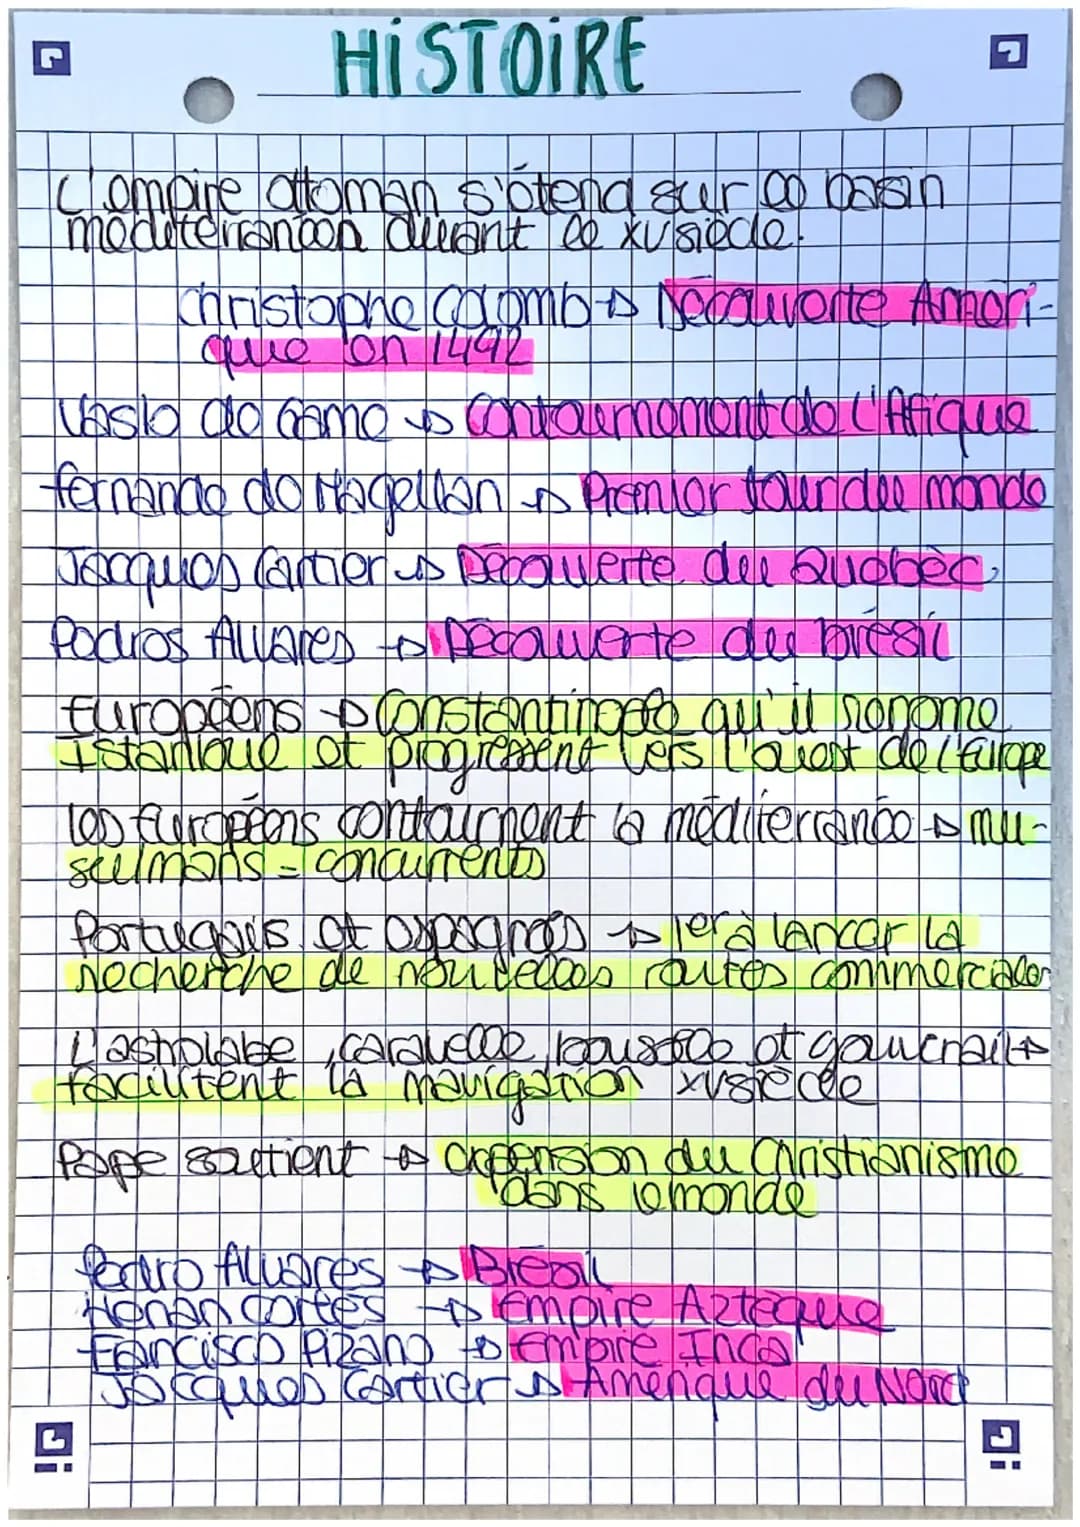 HiSTOiRE
L'empire ottoman s'étend sur le basin
mediterranéen durant le xv siècle.
Christophe Colomb → Découverte Améri-
que en 1492
Vaslo de Game → Contournement de l'Afique
fernande de Magellan → Premier tour du monde
Jacques Cartier → Découverte du Quebèc
Pedros Alvares → Découverte du brésil
Européens → Constantinople qu'il renome
Istanboul et progressent vers l'ouest de l'Europe
les Européens contournent la méditerranée → mu-
sulmans = concurrents
Portugais et espagnols → 1er à lancer la
recherche de nouvelles routes commerciales
L'astrolabe, caravelle, boussole et gouvernail →
facilitent la navigation xv siècle
Pape soutient → expension du Christianisme
dans le monde
Pedro Alvares → Brésil
Henan Cortés → Empire Aztèque
Francisco Pizano → Empire Inca
Jacques Cartier → Amérique du Nord